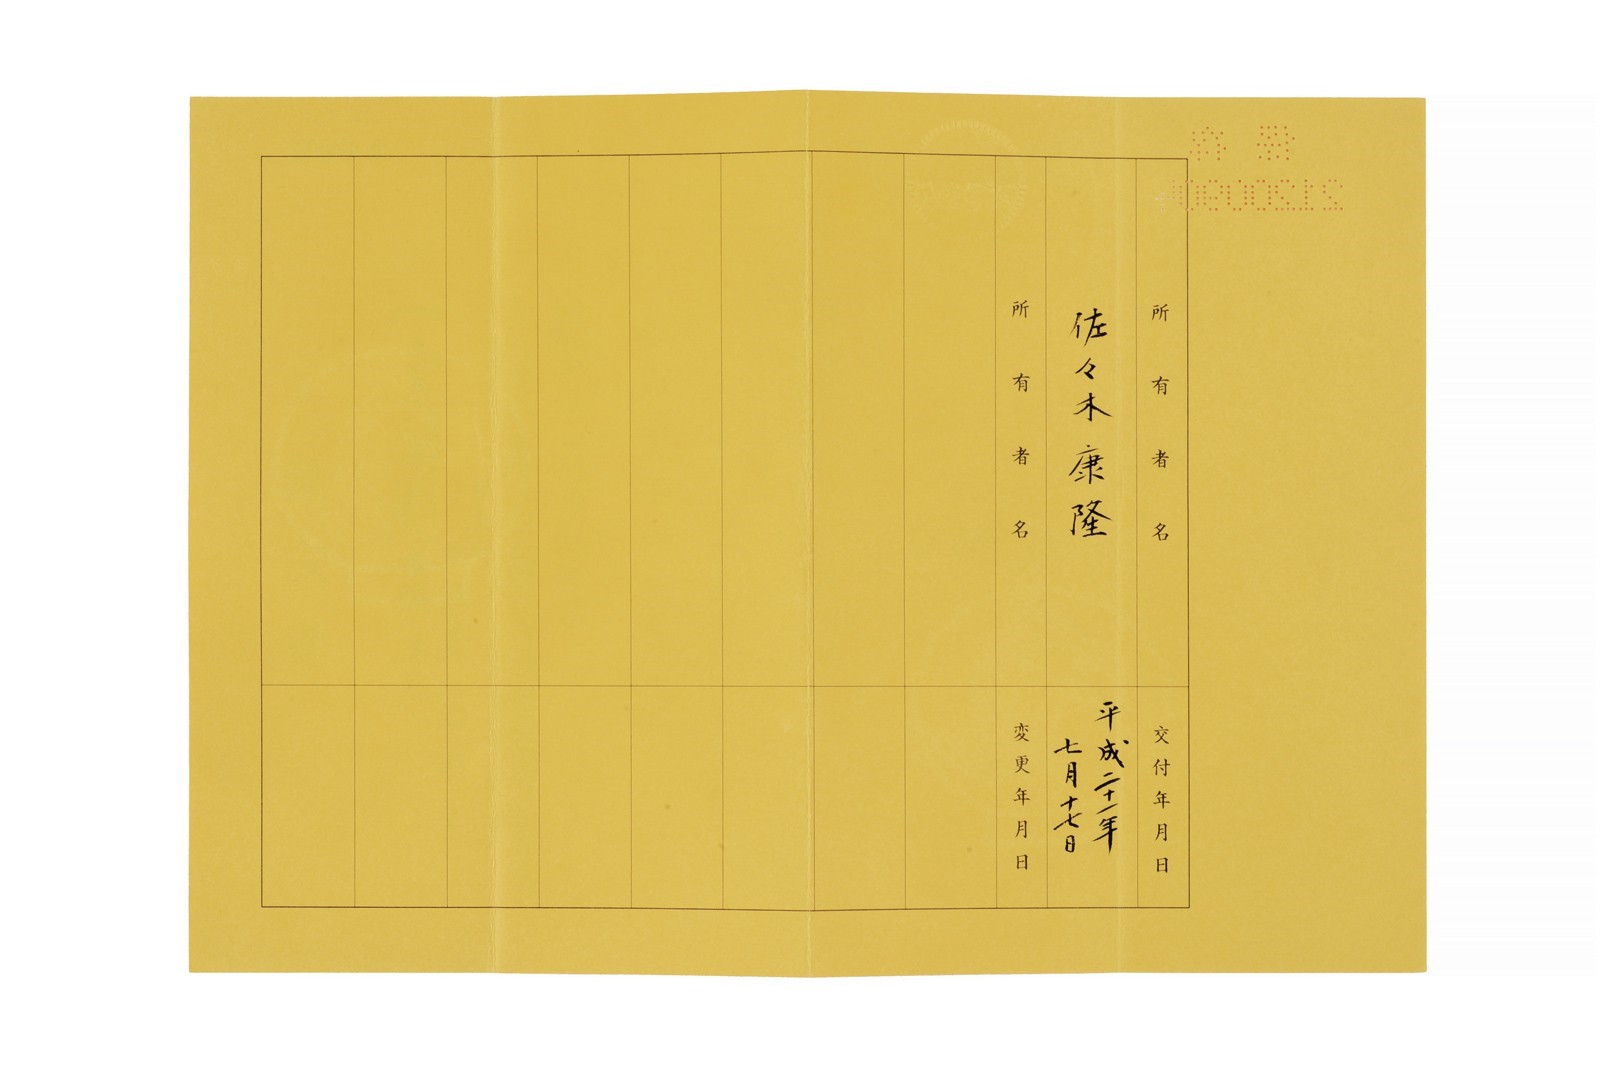 所有者名
交付年月日
佐々木康隆
平成二十一年
七月十七日
所有者名
変更年月日